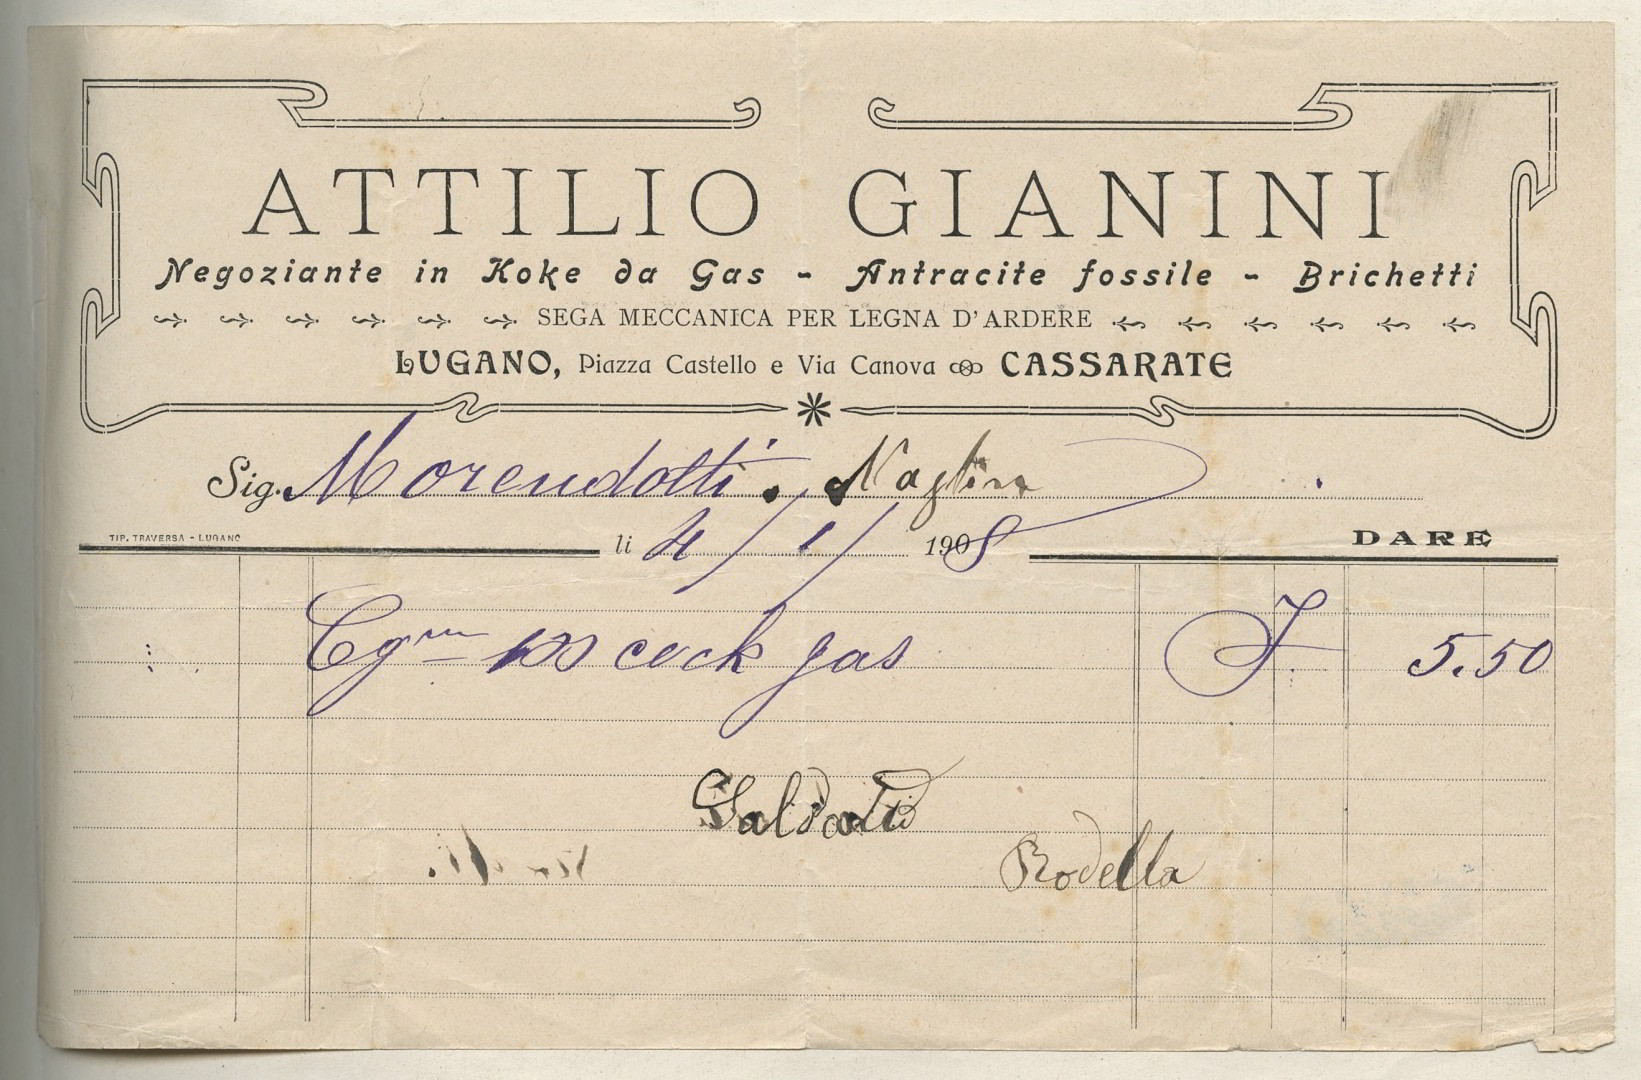 ATTILIO GIANINI
Negoziante in Koke da Gas - Antracite fossile - Brichetti
SEGA MECCANICA PER LEGNA D'ARDERE
LUGANO, Piazza Castello e Via Canova CASSARATE
Sig. Morendotti.
TIP. TRAVERSA - LUGANO
li 4/1/ 1908 DARE
100 cock gas F 5.50
Saldato
Rodella